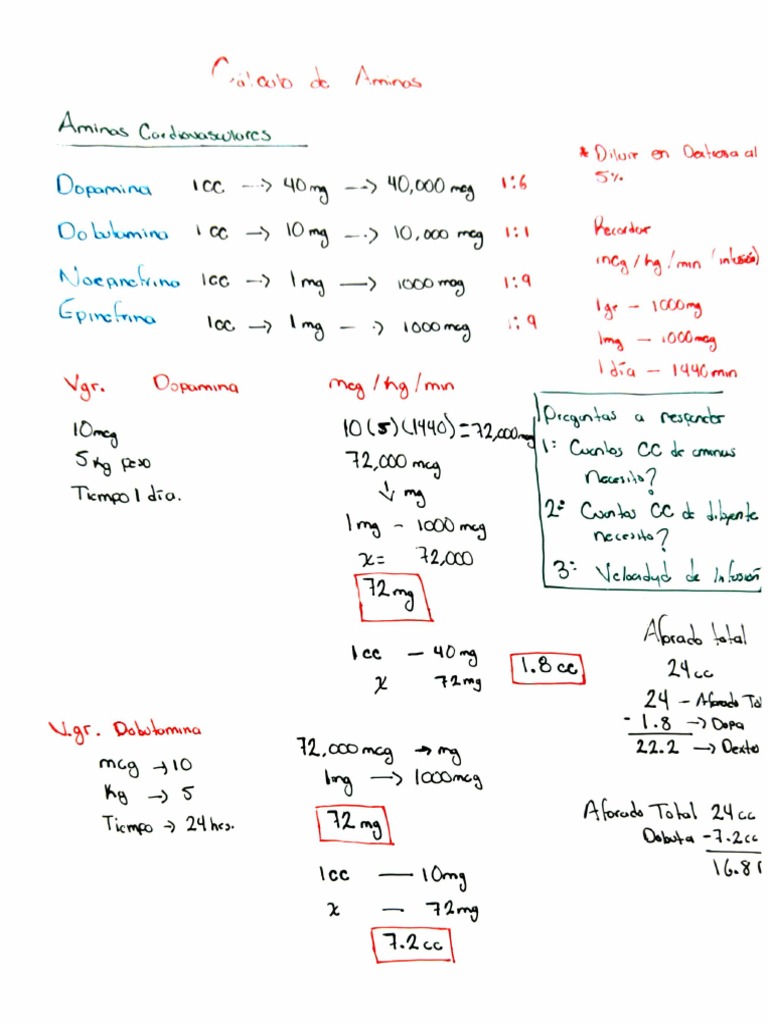 Cálculo de Aminas
Aminas Cardiovasculares
* Diluir en Dextrosa al
5%
Dopamina 1cc --> 40mg --> 40,000 mcg 1:6
Dobutamina 1cc -> 10mg --> 10,000 mcg 1:1
Norepinefrina 1cc -> 1mg -> 1000 mcg 1:9
Epinefrina 1cc -> 1mg --> 1000mcg 1:9
Recordar
mcg/kg/min (infusión)
1gr - 1000mg
1mg - 1000mcg
1 día - 1440min
Vgr. Dopamina mcg/kg/min
10mcg
5 Kg peso
Tiempo 1 día.
10(5)(1440)=72,000mcg
72,000 mcg
↓ mg
1mg - 1000 mcg
x= 72,000
72mg
1cc - 40mg
x 72mg
1.8 cc
Preguntas a responder
1: Cuantos CC de aminas
necesito?
2: Cuantos CC de diluyente
necesito?
3: Velocidad de Infusión
Aforado total
24cc
24 - Aforado To
- 1.8 -> Dopa
22.2 -> Dextro
V.gr. Dobutamina
mcg -> 10
Kg -> 5
Tiempo -> 24hrs.
72,000mcg -> mg
1mg -> 1000mcg
72 mg
1cc - 10mg
x - 72mg
7.2 cc
Aforado Total 24cc
Dobuta -7.2cc
16.8